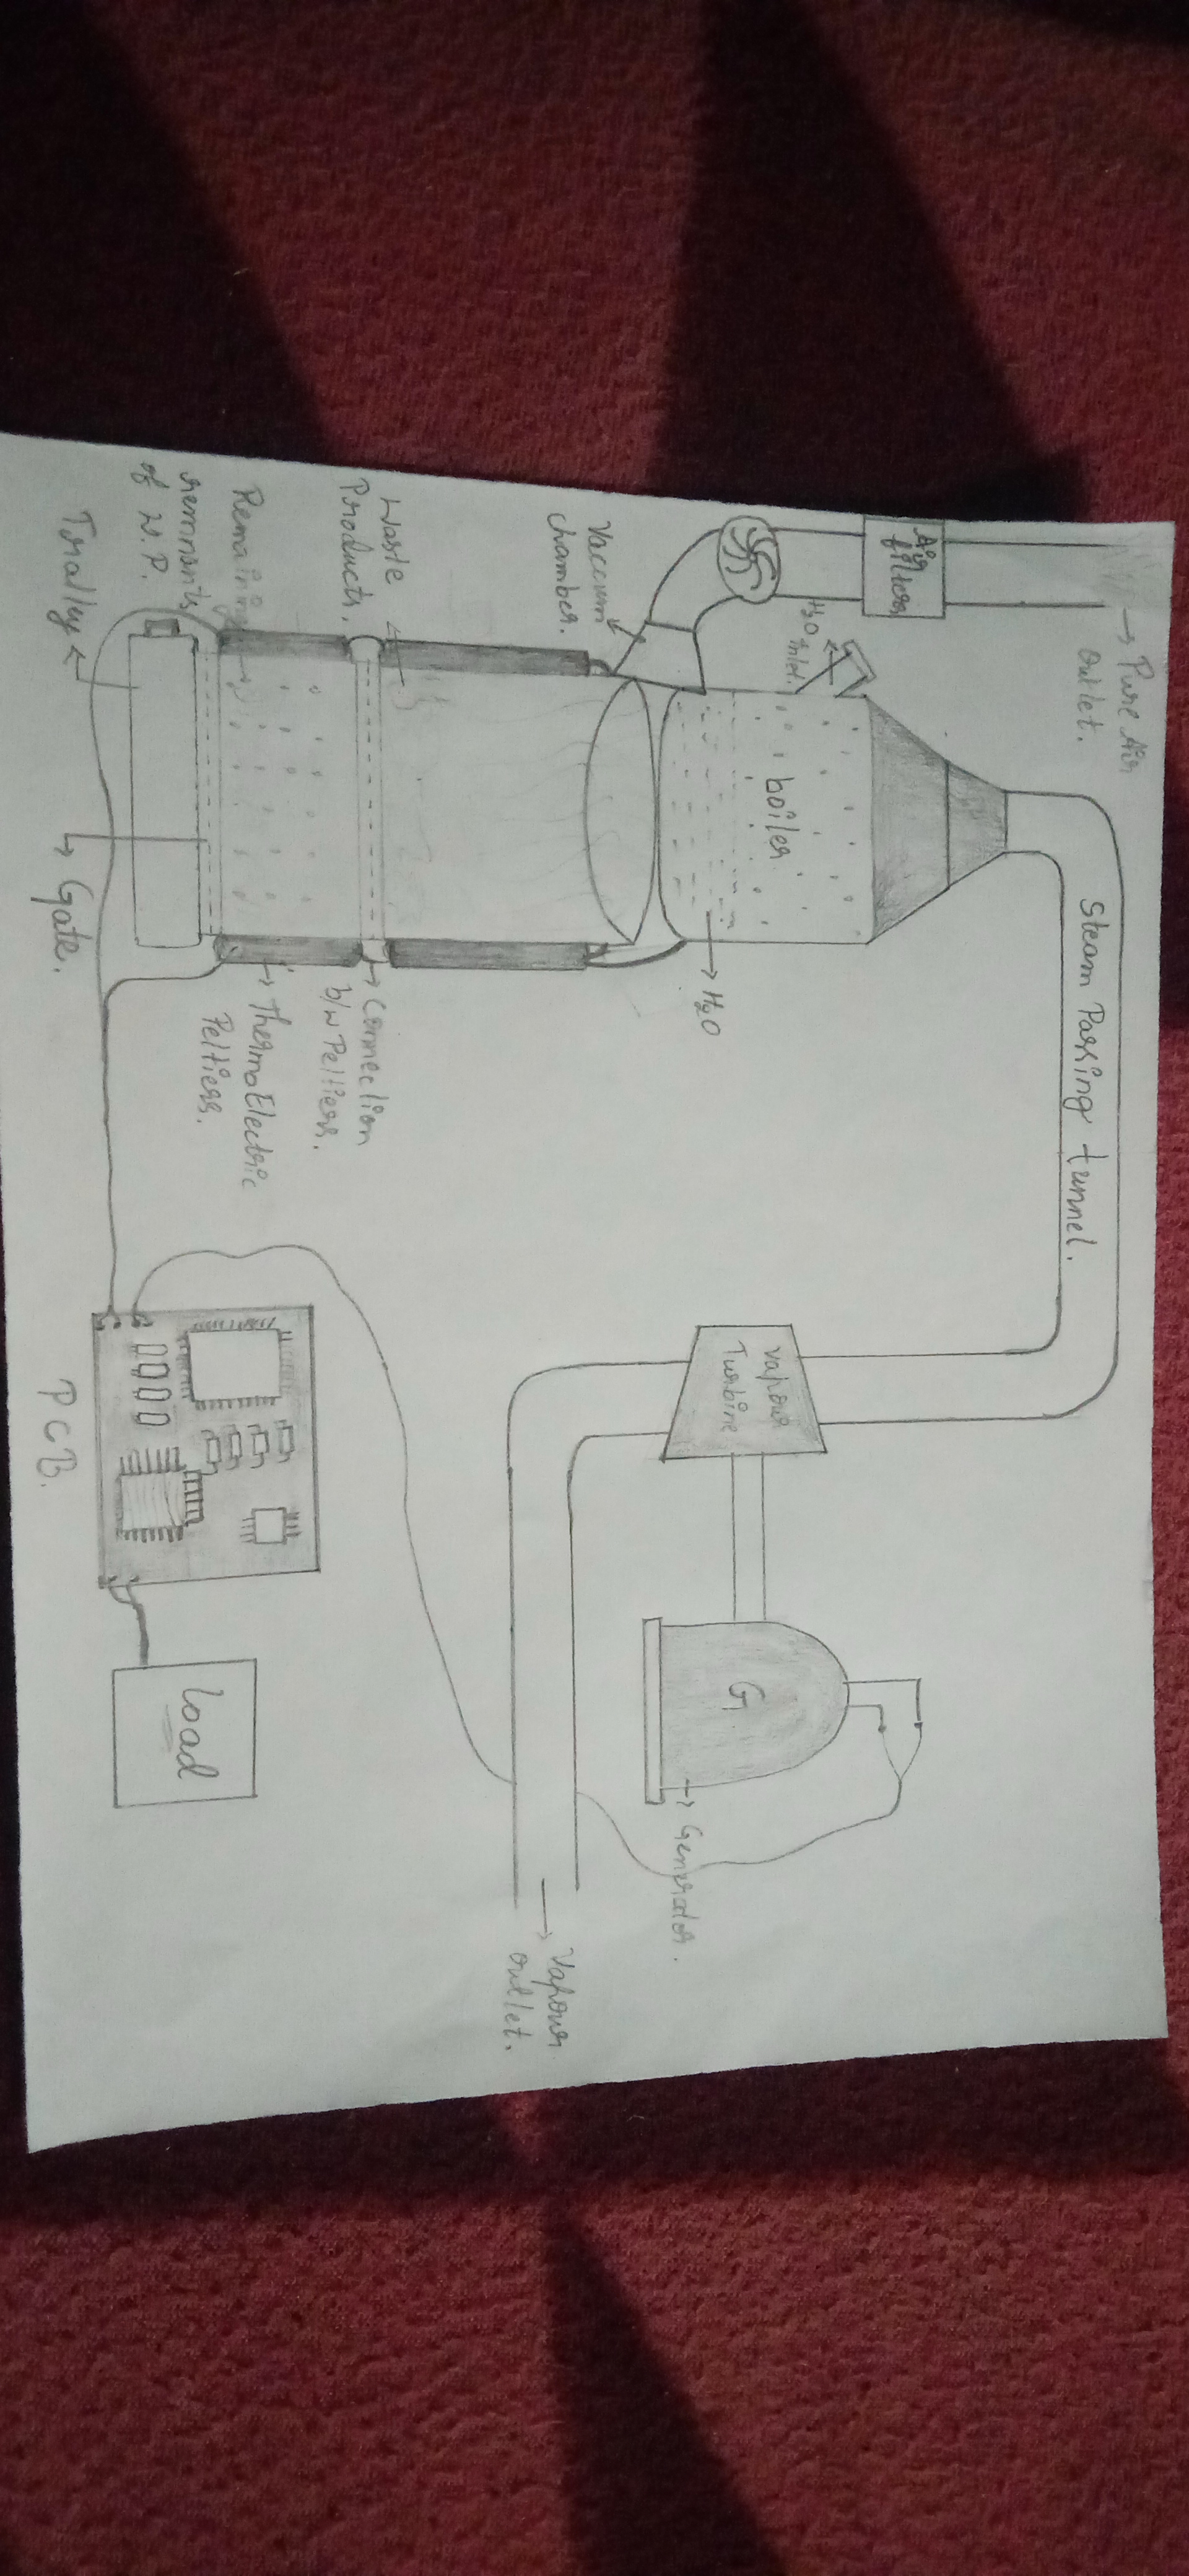 Pure Air
Outlet.
Steam Passing tunnel.
Air
filters
H2O
inlet.
boiler
H2O
Vapour
Turbine
G
Generator.
Vaccum
chamber.
Vapour
outlet.
Waste
Products.
Connection
b/w Peltiers.
Remaining
remnants
of W.P.
ThermoElectric
Peltiers.
Load
Tralley
Gate.
PCB.